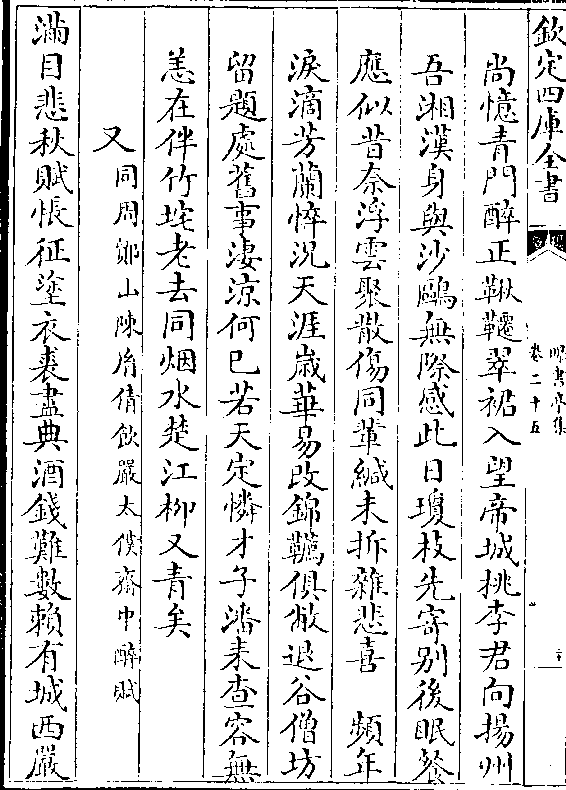 欽定四庫全書
曝書亭集
卷二十五
尚憶青門醉正鞦韆翠裙入望帝城桃李君向揚州
吾湘漢身與沙鷗無際感此日瓊枝先寄别後眠餐
應似昔奈浮雲聚散傷同輩緘未拆雜悲喜　頻年
淚滴芳蘭悴況天涯嵗華易改錦韉俱敝退谷僧坊
留題處舊事淒涼何已若天定憐才子潘耒查容無
恙在伴竹垞老去同烟水楚江栁又青矣
又同周郧山陳胤倩飲嚴太僕齋中醉賦
滿目悲秋賦悵征塗衣裘盡典酒錢難數賴有城西嚴